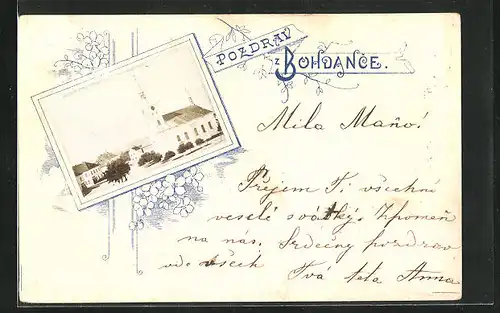 POZDRAV
z BOHDANČE.
Milá Máňo!
Přejem Ti všechni
veselé svátky. Zpomeň
na nás. Srdečný pozdrav
ode všech
Tvá teta Anna